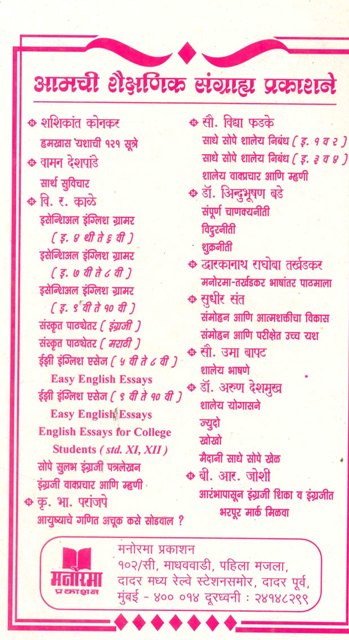 आमची शैक्षणिक संग्राह्य प्रकाशने
शशिकांत कोनकर
हमखास यशाची १२१ सूत्रे
वामन देशपांडे
सार्थ सुविचार
वि. र. काळे
इसेन्शिअल इंग्लिश ग्रामर
( इ. ४ थी ते ६ वी )
इसेन्शिअल इंग्लिश ग्रामर
( इ. ७ वी ते ८ वी )
इसेन्शिअल इंग्लिश ग्रामर
( इ. ९ वी ते १० वी )
संस्कृत पाठ्येतर ( इंग्रजी )
संस्कृत पाठ्येतर ( मराठी )
ईझी इंग्लिश एसेज ( ५ वी ते ८ वी )
Easy English Essays
ईझी इंग्लिश एसेज ( ९ वी ते १० वी )
Easy English Essays
English Essays for College
Students ( std. XI, XII )
सोपे सुलभ इंग्रजी पत्रलेखन
इंग्रजी वाक्प्रचार आणि म्हणी
कृ. भा. परांजपे
आयुष्याचे गणित अचूक कसे सोडवाल ?
सौ. विद्या फडके
साधे सोपे शालेय निबंध ( इ. १ व २ )
साधे सोपे शालेय निबंध ( इ. ३ व ४ )
शालेय वाक्प्रचार आणि म्हणी
डॉ. इन्दुभूषण बडे
संपूर्ण चाणक्यनीती
विदुरनीती
शुक्रनीती
द्धारकानाथ राघोबा तर्खडकर
मनोरमा-तर्खडकर भाषांतर पाठमाला
सुधीर संत
संमोहन आणि आत्मशक्तीचा विकास
संमोहन आणि परीक्षेत उच्च यश
सौ. उमा बापट
शालेय भाषणे
डॉ. अरुण देशमुख
शालेय योगासने
ज्युदो
खोखो
मैदानी साधे सोपे खेळ
बी. आर. जोशी
आरंभापासून इंग्रजी शिका व इंग्रजीत
भरपूर मार्क मिळवा
मनोरमा
प्रकाशन
मनोरमा प्रकाशन
१०२/सी, माधववाडी, पहिला मजला,
दादर मध्य रेल्वे स्टेशनसमोर, दादर पूर्व,
मुंबई - ४०० ०१४ दूरध्वनी : २४१४८२९९